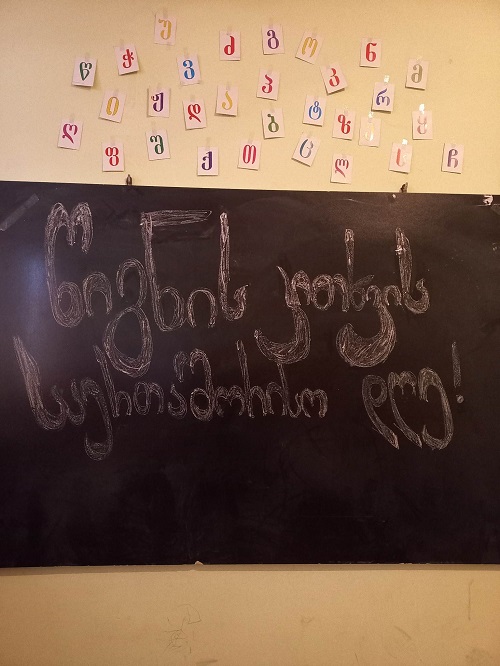 უ
წ ჭ ვ ძ გ ო ნ მ
ი ჟ დ ა პ ტ კ რ
ლ ფ შ ქ თ ბ ც ზ ღ ს ჩ
წიგნის კითხვის
საერთაშორისო დღე!